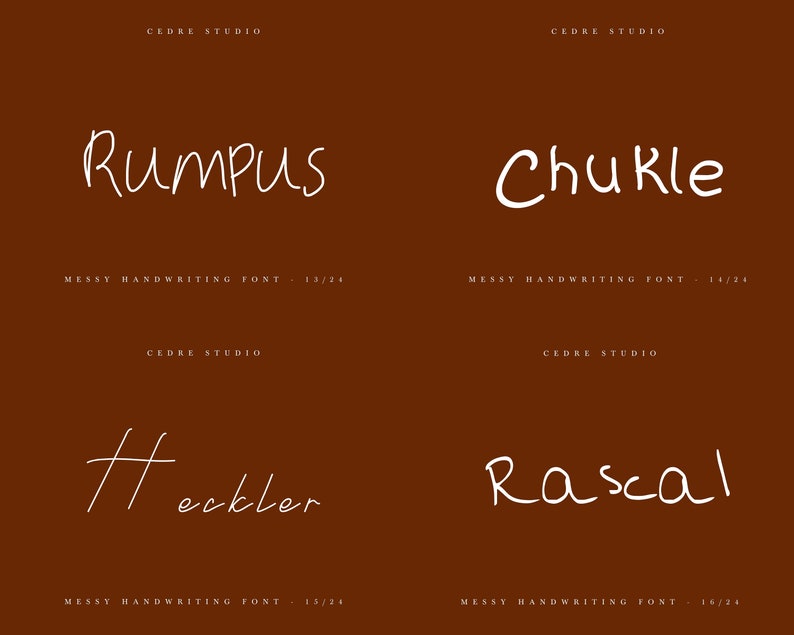 CEDRE STUDIO
Rumpus
MESSY HANDWRITING FONT - 13/24
CEDRE STUDIO
Chukle
MESSY HANDWRITING FONT - 14/24
CEDRE STUDIO
Heckler
MESSY HANDWRITING FONT - 15/24
CEDRE STUDIO
Rascal
MESSY HANDWRITING FONT - 16/24